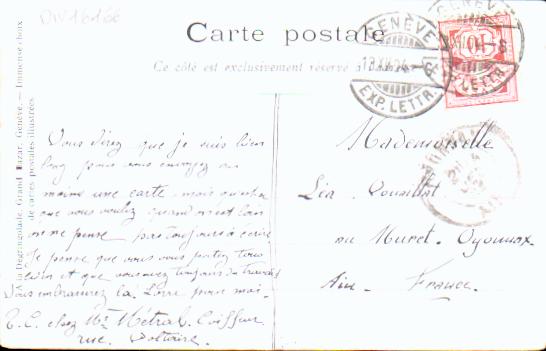 DW16166
Carte postale
Ce côté est exclusivement réservé à l'adresse
GENÈVE
EXP. LETTR.
GENÈVE
LETTR.
10
A la Dégringolade, Grand Bazar, Genève. — Immense choix
de cartes postales illustrées
Vous direz que je suis bien
long pour vous envoyez au
moins une carte mais
que vous voulez quand on est loin
on ne pense pas toujours à écrire
Je pense que vous vous portez tous
bien et que vous avez toujours du travail
Vous embrasserez la pour moi.
T. C. chez Mr Métral. Coiffeur
rue. Voltaire.
Mademoiselle
Léa
rue Muret. Oyonnax
Ain. France.